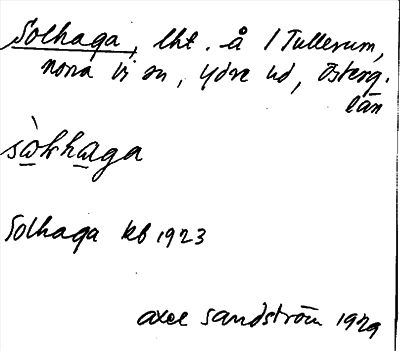 Solhaga, lht. å 1 Tullerum,
norra Vi sn, Ydre hd, Österg.
län
sòlhaga
Solhaga kb 1923
Axel Sandström 1929